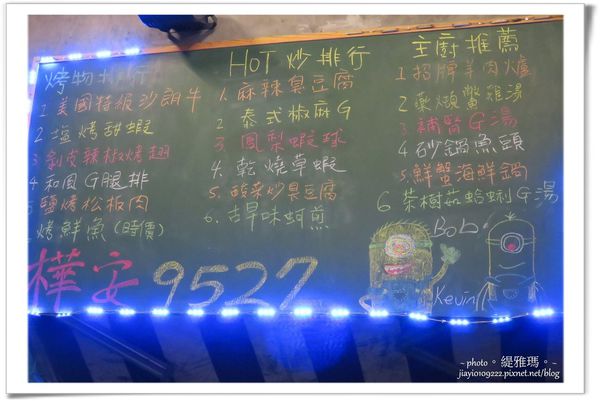 烤物排行
1 美國特級沙朗牛
2 塩烤甜蝦
3 剝皮辣椒烤翅
4 和風G腿排
5 鹽烤松板肉
烤鮮魚(時價)
HOT 炒排行
1. 麻辣臭豆腐
2. 泰式椒麻G
3. 鳳梨蝦球
4. 乾燒草蝦
5. 酸菜炒臭豆腐
6. 古早味蚵煎
主廚推薦
1 招牌羊肉爐
2 鱉雞湯
3 補腎G湯
4 砂鍋魚頭
5 鮮蟹海鮮鍋
6 茶樹菇蛤蜊G湯
樺安 9527
Bob
Kevin
~ photo。緹雅瑪。~
jiayio109222.pixnet.net/blog